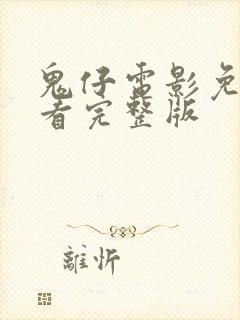 鬼仔電影免
看完整版
離忻